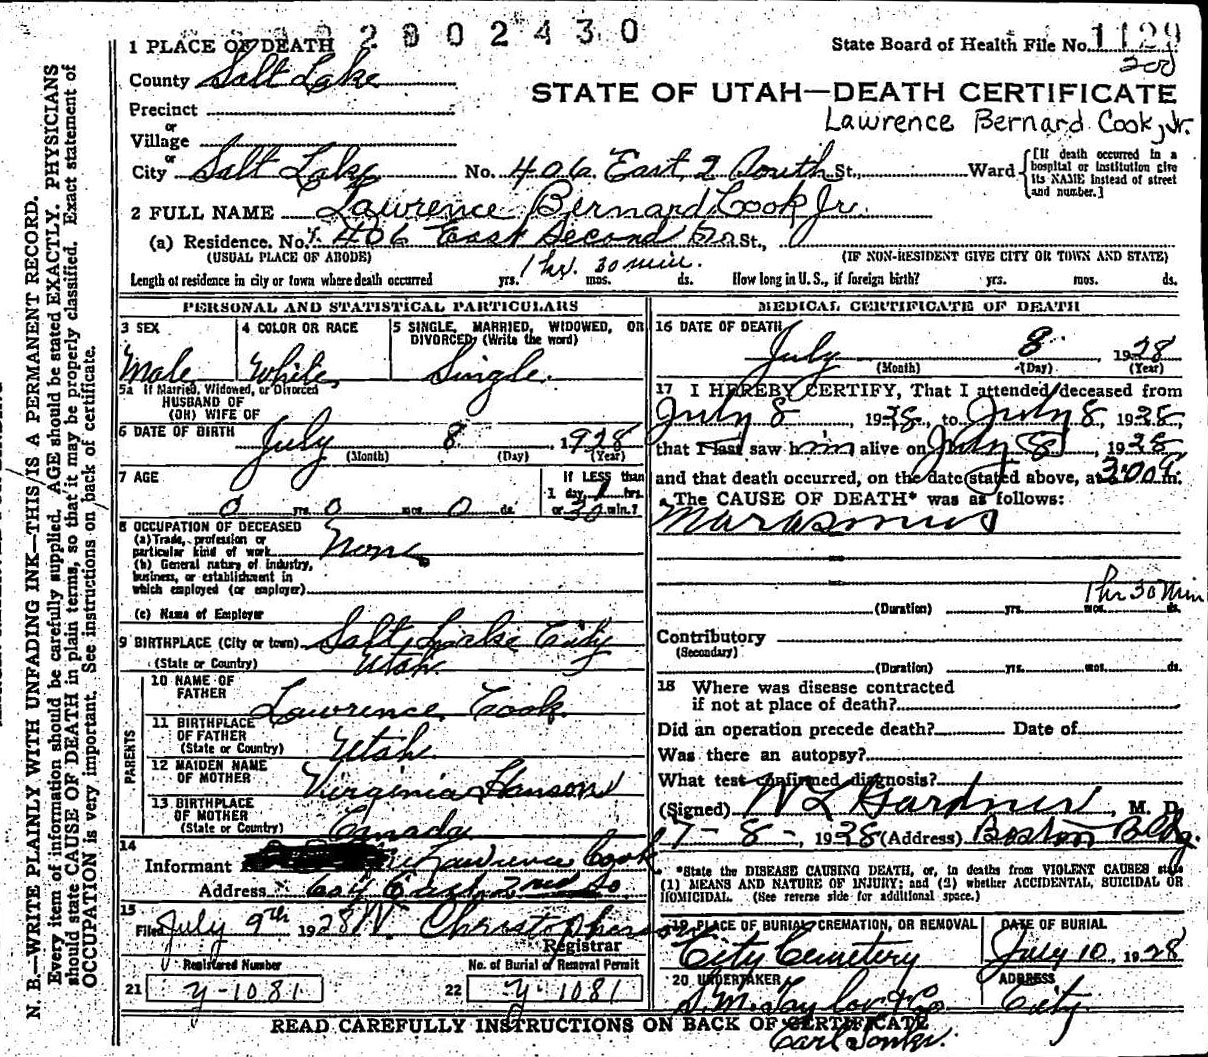 2 9 0 2 4 3 0
1 PLACE OF DEATH
State Board of Health File No. 1129
200
County Salt Lake
STATE OF UTAH—DEATH CERTIFICATE
Precinct
Lawrence Bernard Cook, Jr.
or
Village
or
City Salt Lake No. 406 East 2 South St., Ward [If death occurred in a hospital or institution give its NAME instead of street and number.]
2 FULL NAME Lawrence Bernard Cook Jr.
(a) Residence. No. 406 East Second So St.,
(USUAL PLACE OF ABODE) (IF NON-RESIDENT GIVE CITY OR TOWN AND STATE)
1 hr. 30 min.
Length of residence in city or town where death occurred yrs. mos. ds. How long in U. S., if foreign birth? yrs. mos. ds.
PERSONAL AND STATISTICAL PARTICULARS
3 SEX 4 COLOR OR RACE 5 SINGLE, MARRIED, WIDOWED, OR DIVORCED, (Write the word)
Male White Single.
5a If Married, Widowed, or Divorced
HUSBAND OF
(OR) WIFE OF
6 DATE OF BIRTH July 8 1928
(Month) (Day) (Year)
7 AGE If LESS than
1 day, 1 hrs.
0 yrs. 0 mos. 0 ds. or 30 min.?
8 OCCUPATION OF DECEASED
(a) Trade, profession or
particular kind of work None
(b) General nature of industry,
business, or establishment in
which employed (or employer)
(c) Name of Employer
9 BIRTHPLACE (City or town) Salt Lake City
(State or Country) Utah
PARENTS
10 NAME OF
FATHER Lawrence Cook
11 BIRTHPLACE
OF FATHER
(State or Country) Utah
12 MAIDEN NAME
OF MOTHER Virginia Hanson
13 BIRTHPLACE
OF MOTHER
(State or Country) Canada
14
Informant Lawrence Cook
Address East 2nd So
15
Filed July 9th 1928 W. Christopherson
Registrar
Registered Number No. of Burial or Removal Permit
21 y-1081 22 y-1081
MEDICAL CERTIFICATE OF DEATH
16 DATE OF DEATH
July 8 1928
(Month) (Day) (Year)
17 I HEREBY CERTIFY, That I attended deceased from
July 8, 1928, to July 8, 1928,
that I last saw him alive on July 8, 1928
and that death occurred, on the date stated above, at 3:00 P. m.
The CAUSE OF DEATH* was as follows:
Marasmus
1 hr 30 min
(Duration) yrs. mos. ds.
Contributory
(Secondary)
(Duration) yrs. mos. ds.
18 Where was disease contracted
if not at place of death?
Did an operation precede death? Date of
Was there an autopsy?
What test confirmed diagnosis?
(Signed) W L Gardner, M. D.
7-8-, 1928 (Address) Boston Bldg.
*State the DISEASE CAUSING DEATH, or, in deaths from VIOLENT CAUSES state
(1) MEANS AND NATURE OF INJURY; and (2) whether ACCIDENTAL, SUICIDAL OR
HOMICIDAL. (See reverse side for additional space.)
19 PLACE OF BURIAL, CREMATION, OR REMOVAL DATE OF BURIAL
City Cemetery July 10 1928
20 UNDERTAKER ADDRESS
S. M. Taylor & Co City
READ CAREFULLY INSTRUCTIONS ON BACK OF CERTIFICATE
Carl
N. B.—WRITE PLAINLY WITH UNFADING INK—THIS IS A PERMANENT RECORD.
Every item of information should be carefully supplied. AGE should be stated EXACTLY. PHYSICIANS
should state CAUSE OF DEATH in plain terms, so that it may be properly classified. Exact statement of
OCCUPATION is very important. See instructions on back of certificate.